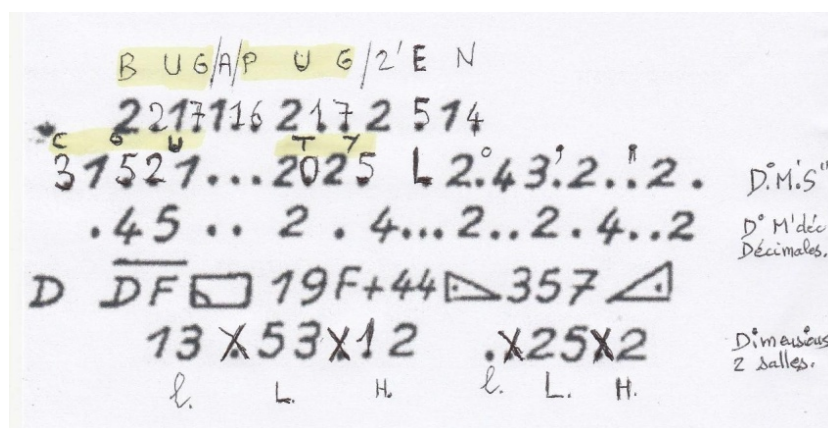 B U G/A/P U G/2' E N
2217116 2172 514
C O U T Y
31521...2025 L 2.°43'.2..".2. D°.M'.S"
.45.. 2.4...2..2.4..2 D° M'déc Décimales.
D DF 19F+44 357
13 X.53X12 .X25X2 Dimensions 2 salles.
l. L. H. l. L. H.